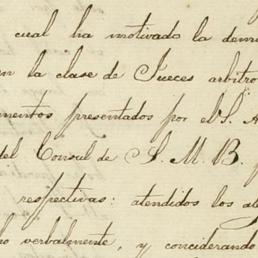 cual ha motivado la dem
en la clase de Jueces arbitro
mentos presentados por el S. A
del Consul de S. M. B.
respectivas: atendidos los al
ho verbalmente, y conciderando